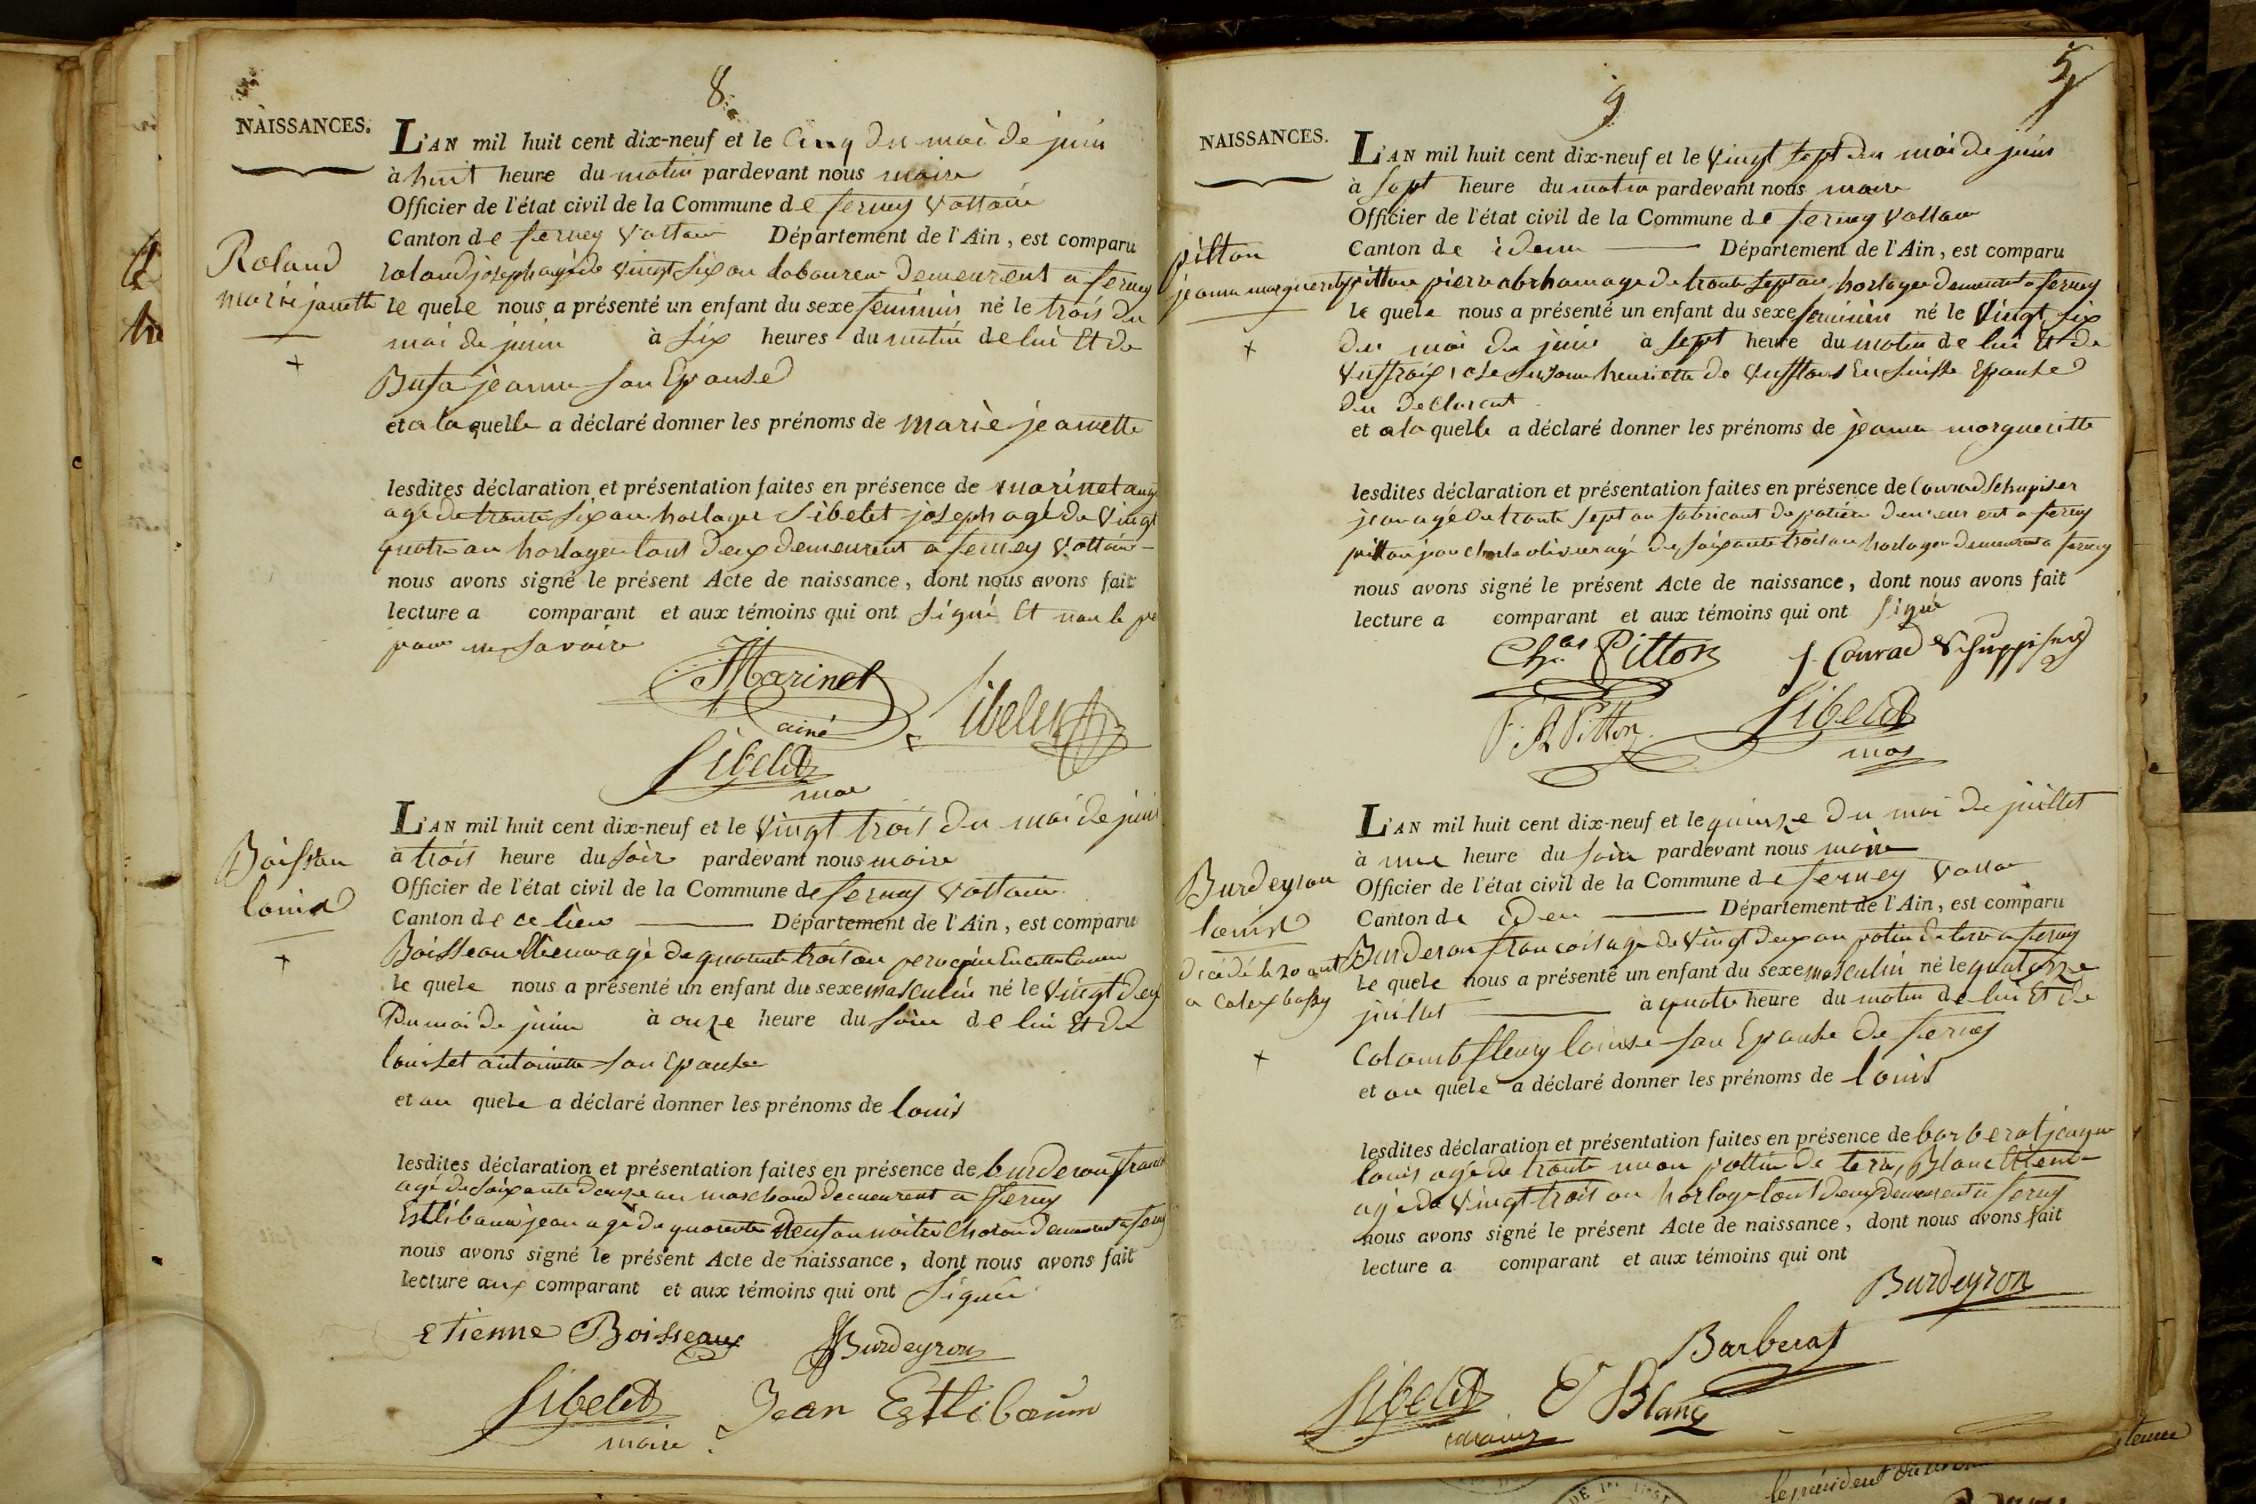 8
NAISSANCES.
L'AN mil huit cent dix-neuf et le Cinq du moi de juin
à huit heure du matin pardevant nous maire
Officier de l'état civil de la Commune de ferney Voltaire
Canton de ferney Voltaire Département de l'Ain, est comparu
Roland
marie janette
+
roland joseph agé de vingt six an laboureur demeurent a ferney
le quele nous a présenté un enfant du sexe feminin né le trois du
moi de juin à six heures du matin de lui Et de
jeanne son Epouse
et a la quelle a déclaré donner les prénoms de marie jeanette
lesdites déclaration et présentation faites en présence de marinet
agé de trente six an horloger Sibelet joseph agé de vingt
quatre an horloger tout deux demeurent a ferney Voltaire
nous avons signé le présent Acte de naissance, dont nous avons fait
lecture a comparant et aux témoins qui ont signé Et non le
pour ne savoire
Marinet
ainé
Sibelet
Sibelet
maire
L'AN mil huit cent dix-neuf et le vingt trois du moi de juin
à trois heure du soir pardevant nous maire
Officier de l'état civil de la Commune de ferney Voltaire
Canton de ce lieu Département de l'Ain, est comparu
Boissau
louis
+
Boisseau Etienne agé de quarente trois an
le quele nous a présenté un enfant du sexe masculin né le vingt deux
Du moi de juin à onze heure du soire de lui Et de
antoinette son Epouse
et au quele a déclaré donner les prénoms de louis
lesdites déclaration et présentation faites en présence de burderon
agé de soixante douze an marchand demeurent a ferney
Esttibaum jean agé de quarente neuf an
nous avons signé le présent Acte de naissance, dont nous avons fait
lecture aux comparant et aux témoins qui ont signée
Etienne Boisseaux
Burdeyron
Sibelet
maire
Jean Esttibaum
9
5
NAISSANCES.
L'AN mil huit cent dix-neuf et le vingt sept du moi de juin
à sept heure du matin pardevant nous maire
Officier de l'état civil de la Commune de ferney Voltaire
Canton de idem Département de l'Ain, est comparu
pitton
jeanne marguerite
+
pitton pierre abrham agé de trente sept an horloger demeurent a ferney
le quele nous a présenté un enfant du sexe feminin né le vingt six
du moi de juin à sept heure du matin de lui Et de
henriette de En suisse Epouse
du Declarent
et a la quelle a déclaré donner les prénoms de jeanne margueritte
lesdites déclaration et présentation faites en présence de Conrad Schupiser
jean agé de trente sept an fabricant de demeurent a ferney
pitton jean charle olivier agé de soixante trois an horloger demeurent a ferney
nous avons signé le présent Acte de naissance, dont nous avons fait
lecture a comparant et aux témoins qui ont signé
Chas Pitton
J. Conrad Schuppiser
P A Pitton
Sibelet
maire
L'AN mil huit cent dix-neuf et le quinze du moi de juillet
à une heure du soire pardevant nous maire
Officier de l'état civil de la Commune de ferney Voltaire
Canton de idem Département de l'Ain, est comparu
Burdeyron
louis
décédé le 20 aut
a
+
Burderon francois agé de vingt deux an potier de terre a ferney
le quele nous a présenté un enfant du sexe masculin né le quatorze
juillet à quatre heure du matin de lui Et de
Colomb fleury louise son Epouse de ferney
et au quele a déclaré donner les prénoms de louis
lesdites déclaration et présentation faites en présence de barberat
louis agé de trente un an pottier de terre, Blanc Etienne
agé de vingt trois an horloger tout deux demeurent a ferney
nous avons signé le présent Acte de naissance, dont nous avons fait
lecture a comparant et aux témoins qui ont
Burdeyron
Barberat
Sibelet
maire
E Blanc
le président